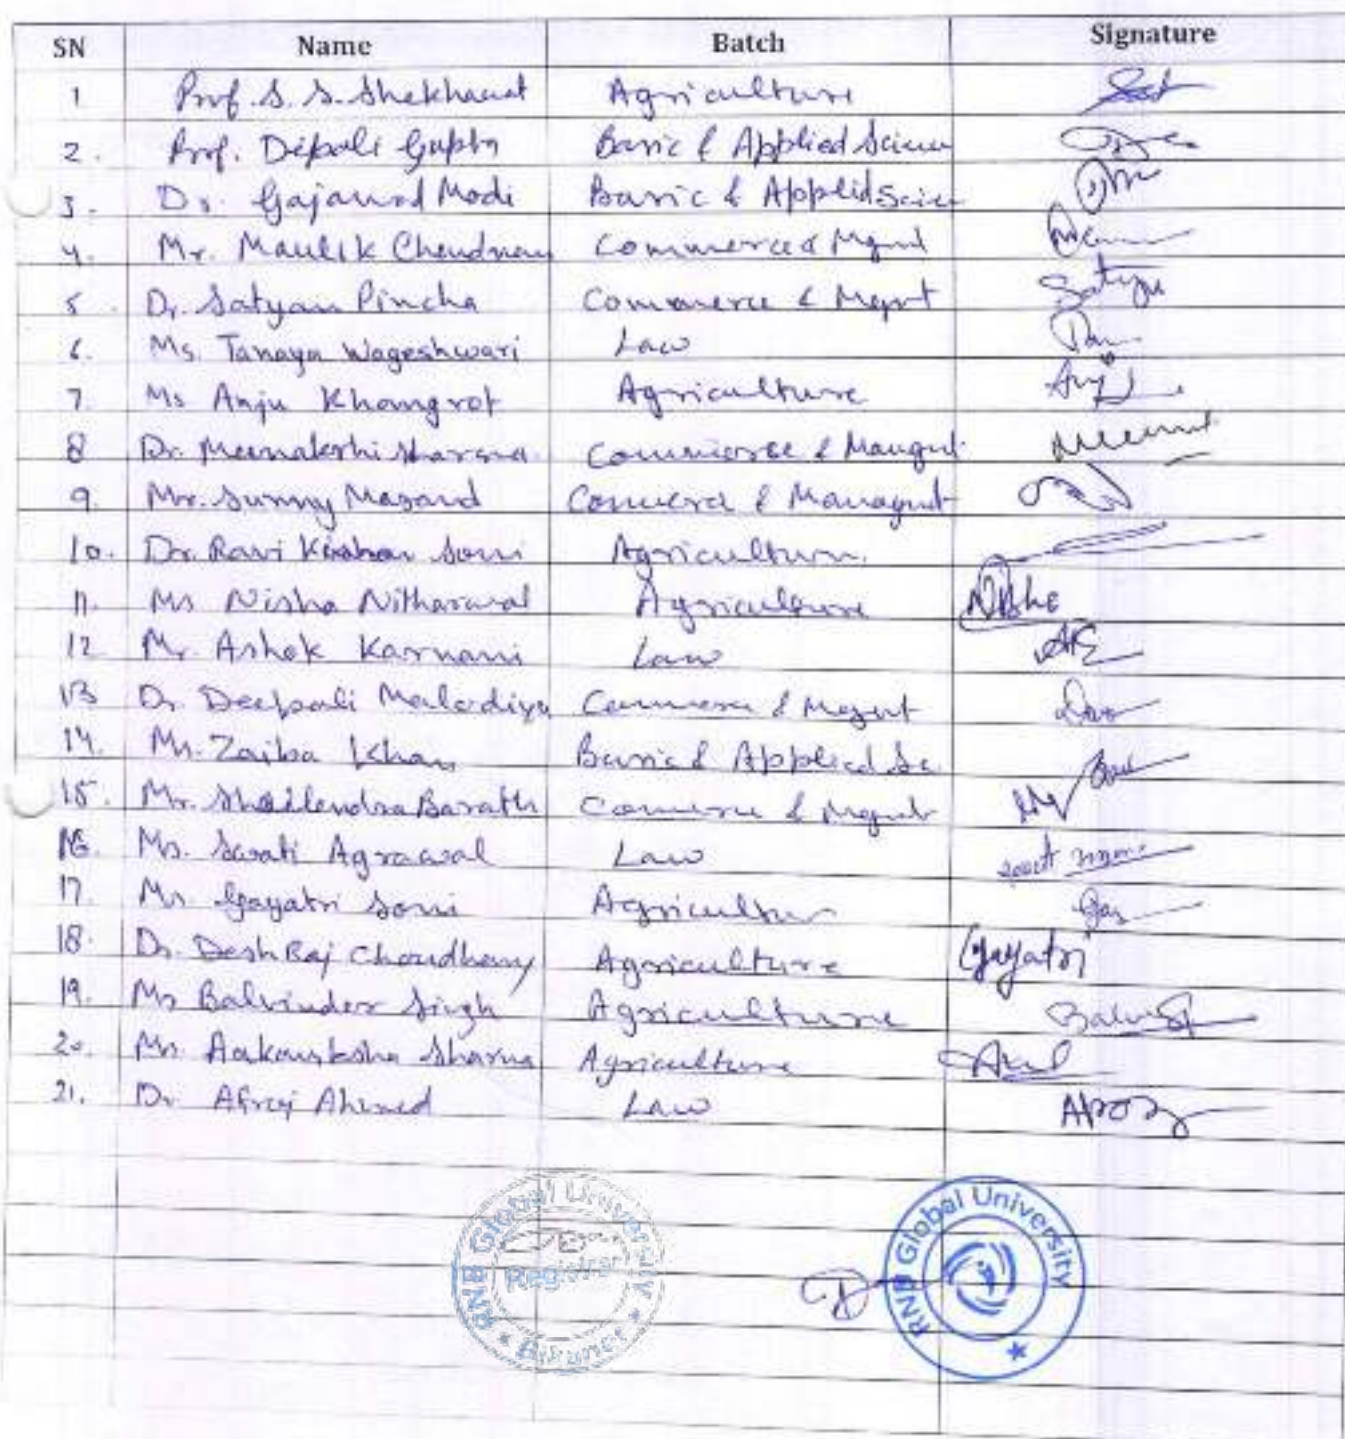 SN Name Batch Signature
1 Prof. S. S. Shekhawat Agriculture
2. Prof. Dipali Gupta Basic & Applied Science
3. Dr. Gajanand Modi Basic & Applied Scien
4. Mr. Maulik Commerce & Mgmt
5. Dr. Satyam Pincha Commerce & Mgmt Satya
6. Ms. Tanaya Wageshwari Law
7. Ms Anju Khangrot Agriculture
8 Dr. Meenakshi Sharma Commerce &
9. Mr. Sunny Masand Commerce &
10. Dr. Ravi Kishan Soni Agriculture
11. Ms Nisha Nitharwal Agriculture Nisha
12 Mr Ashok Karnani Law
13 Dr. Deepali Commerce & Mgmt
14. Ms. Zaiba Khan Basic & Applied Sc.
15. Mr. Shailendra Commerce & Mgmt
16. Ms. Swati Agrawal Law
17. Ms. Gayatri Soni Agriculture
18. Dr. Desh Raj Choudhary Agriculture Gayatri
19. Mr Balvinder Singh Agriculture
20. Ms. Aakanksha Sharma Agriculture
21. Dr. Afroj Ahmed Law
RNB Global University
Registrar
Bikaner
RNB Global University